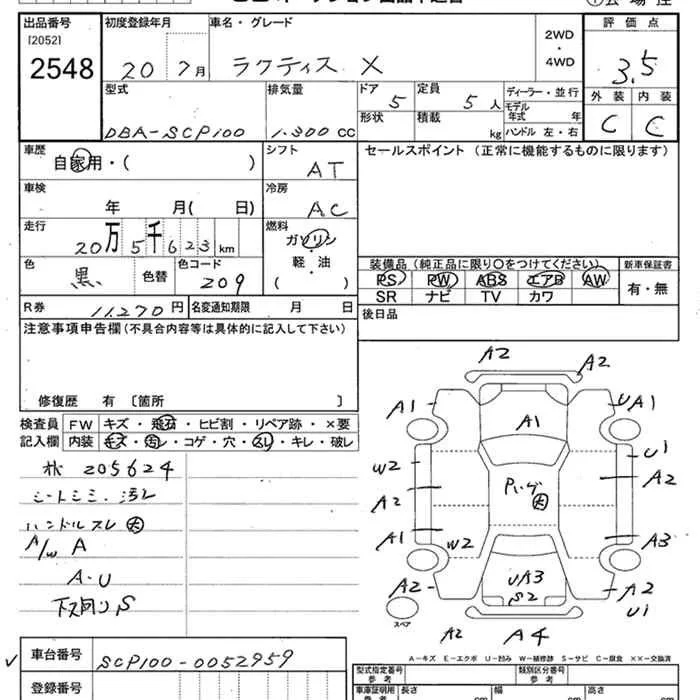 出品番号 初度登録年月 車名・グレード 2WD・4WD 評価点
[2052]
2548 20 7月 ラクティス X 3.5
型式 排気量 ドア 5 定員 5人 ディーラー・並行 外装 内装
DBA-SCP100 1.300cc 形状 積載 kg モデル年式 年 C C
ハンドル 左・右
車歴 シフト セールスポイント (正常に機能するものに限ります)
自家用・( ) AT
車検 冷房
年 月( 日) AC
走行 燃料
20万5千623km ガソリン
軽・油
( )
色 色替 色コード 装備品 (純正品に限り○をつけてください) 新車保証書
黒 209 PS PW ABS エアB AW 有・無
SR ナビ TV カワ
R券 11.270円 名変通知期限 月 日 後日品
注意事項申告欄(不具合内容等は具体的に記入して下さい)
修復歴 有 〔箇所 〕
検査員 FW キズ・飛石・ヒビ割・リペア跡・×要
記入欄 内装 キズ・汚レ・コゲ・穴・スレ・キレ・破レ
205624
シートシミ、汚レ
ハンドルスレ大
A/W A
A・U
下回りS
A2 A2
A1 A1 UA1
W2 U1
A2 A2
A1 W2 A3
A2 UA3 A2
S2 U1
スペア
A2 A4
A-キズ E-エクボ U-凹ミ W-補修跡 S-サビ C-腐食 ××-交換済
車台番号 SCP100-0052959
型式指定番号 参考 類別区分番号 参考
登録番号 車庫証明用 参考 長さ cm 幅 cm 高さ cm